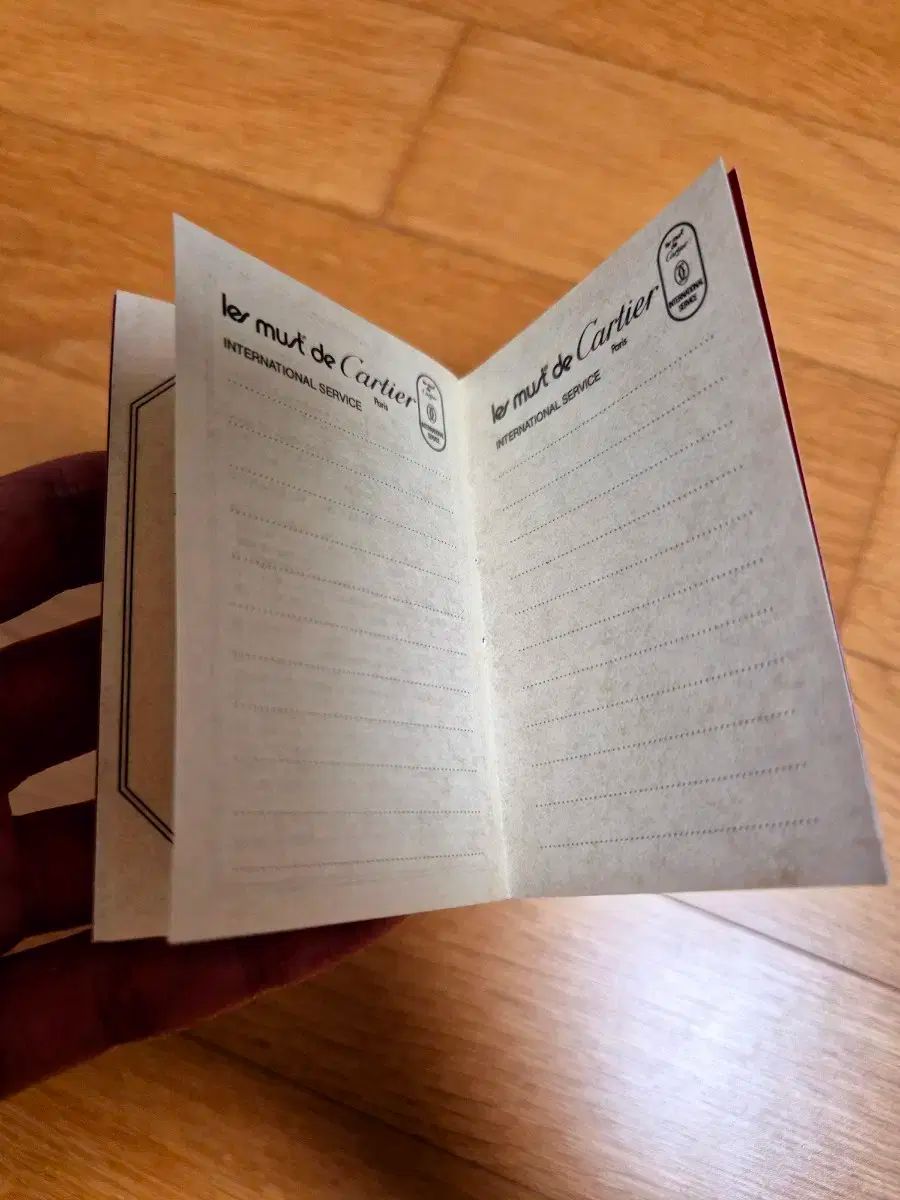 les must de Cartier
Paris
INTERNATIONAL SERVICE
les must
de
Cartier
INTERNATIONAL
SERVICE
les must de Cartier
Paris
INTERNATIONAL SERVICE
les must
de
Cartier
INTERNATIONAL
SERVICE